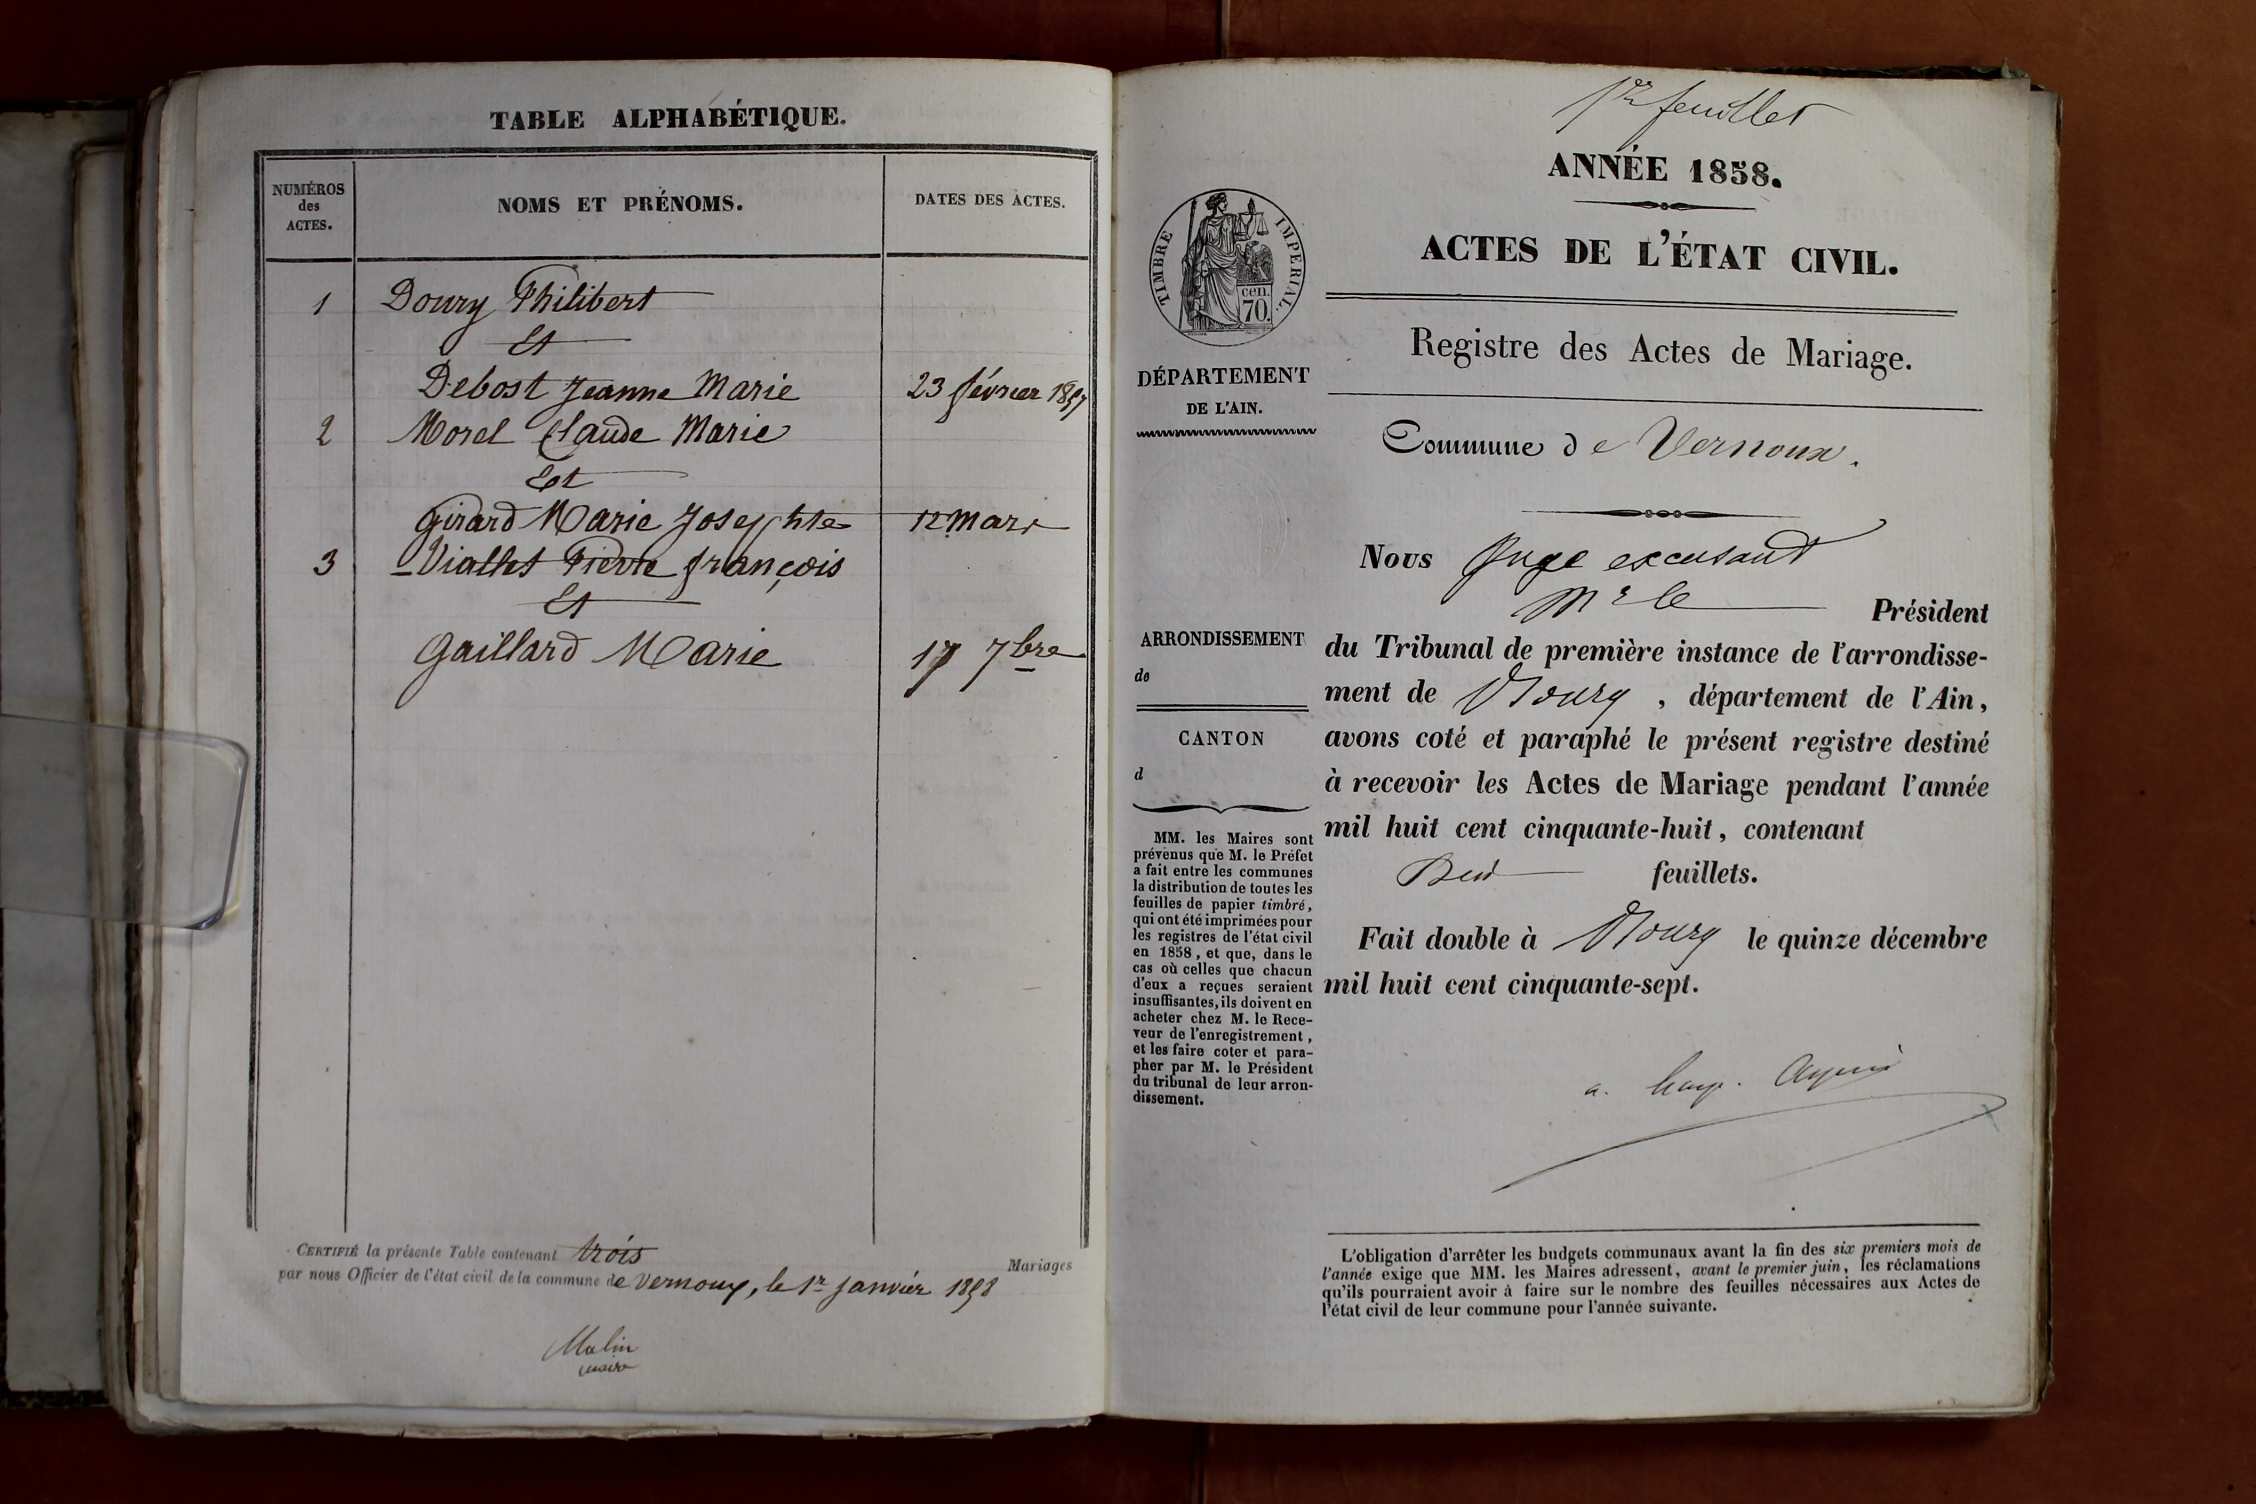 TABLE ALPHABÉTIQUE.
NUMÉROS
des
ACTES.
NOMS ET PRÉNOMS.
DATES DES ACTES.
1 Doury Philibert
Et
Debost Jeanne Marie 23 février 1857
2 Morel Claude Marie
Et
Girard Marie Josephte 12 mars
3 Viallet Pierre françois
Et
Gaillard Marie 17 7bre
CERTIFIÉ la présente Table contenant trois Mariages
par nous Officier de l'état civil de la commune de Vernoux, le 1r Janvier 1858
maire
1er feuillet
ANNÉE 1858.
TIMBRE IMPERIAL.
cen.
70.
ACTES DE L'ÉTAT CIVIL.
Registre des Actes de Mariage.
DÉPARTEMENT
DE L'AIN.
Commune de Vernoux.
ARRONDISSEMENT
de
CANTON
d
MM. les Maires sont
prévenus que M. le Préfet
a fait entre les communes
la distribution de toutes les
feuilles de papier timbré,
qui ont été imprimées pour
les registres de l'état civil
en 1858, et que, dans le
cas où celles que chacun
d'eux a reçues seraient
insuffisantes, ils doivent en
acheter chez M. le Rece-
veur de l'enregistrement,
et les faire coter et para-
pher par M. le Président
du tribunal de leur arron-
dissement.
Nous Juge excusant
Mr le Président
du Tribunal de première instance de l'arrondisse-
ment de Bourg, département de l'Ain,
avons coté et paraphé le présent registre destiné
à recevoir les Actes de Mariage pendant l'année
mil huit cent cinquante-huit, contenant
feuillets.
Fait double à Bourg le quinze décembre
mil huit cent cinquante-sept.
L'obligation d'arrêter les budgets communaux avant la fin des six premiers mois de
l'année exige que MM. les Maires adressent, avant le premier juin, les réclamations
qu'ils pourraient avoir à faire sur le nombre des feuilles nécessaires aux Actes de
l'état civil de leur commune pour l'année suivante.